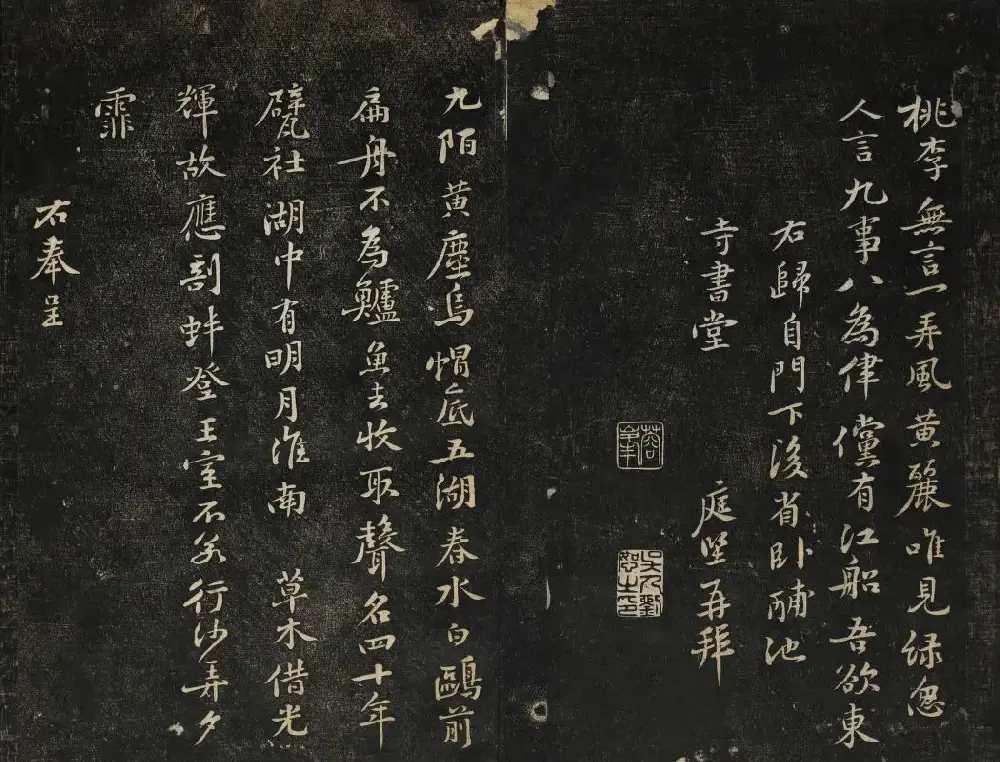 桃李無言一弄風黄麗唯見緑怱
人言九事八為律儻有江船吾欲東
右歸自門下後省卧酺池
寺書堂 庭堅再拜
蓉峯
九陌黄塵烏帽底五湖春水白鷗前
扁舟不為鱸魚去收取聲名四十年
甓社湖中有明月淮南草木借光
輝故應剖蚌登王室不若行沙弄夕
霏
右奉呈